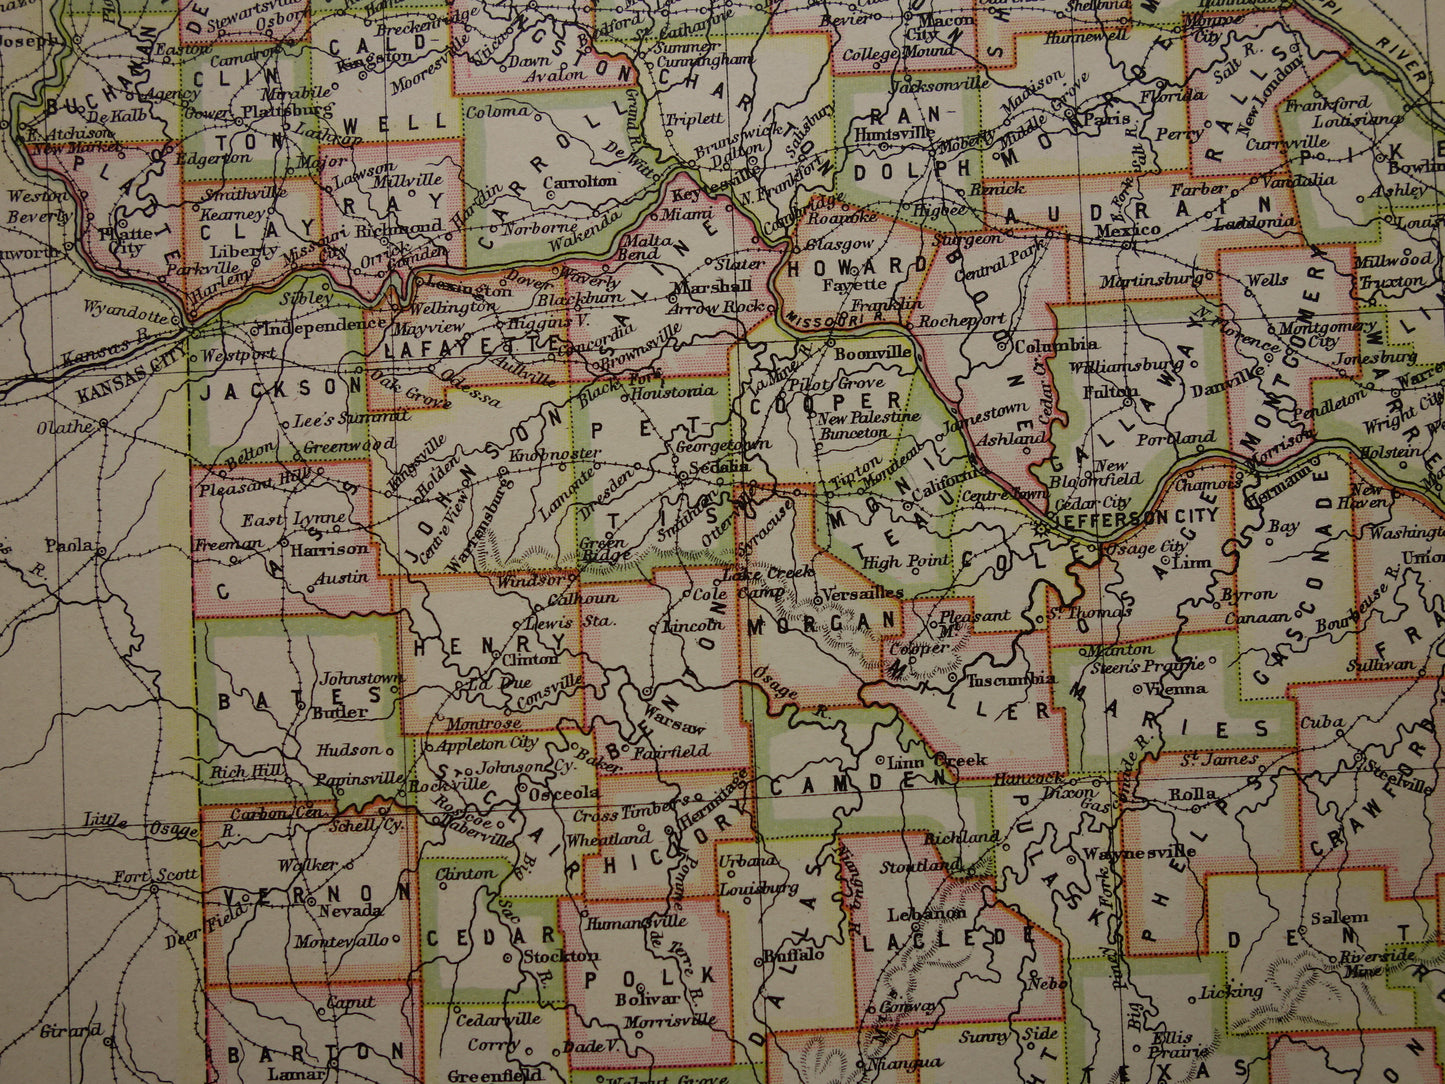 Stewartsville
Osborn
Breckenridge
Utica
St. Catharine
Bevier
Macon City
Shelbina
Monroe City
Hunnewell
Joseph
Easton
Cameron
CALDWELL
Kingston
Mooresville
Dawn
Avalon
Summer
Cunningham
College Mound
Jacksonville
Madison
Salt R.
RIVER
BUCHANAN
Agency
De Kalb
CLINTON
Gower
Plattsburg
Mirabile
Lathrop
Coloma
Grand R.
CHARITON
Triplett
Salisbury
RANDOLPH
Huntsville
Moberly
Middle Grove
MONROE
Paris
Florida
Perry
RALLS
New London
Frankford
Louisiana
Curryville
PIKE
Bowlin
E. Atchison
New Market
PLATTE
Edgerton
Major
Lawson
Millville
RAY
Hardin
CARROLL
Carrolton
De Witt
Brunswick
Dalton
Keytesville
N. Frankfort
Cambridge
Roanoke
Renick
Higbee
AUDRAIN
Farber
Vandalia
Laddonia
Ashley
Louis
Weston
Beverly
Platte City
Smithville
Kearney
CLAY
Liberty
Missouri City
Richmond
Orrick
Camden
Norborne
Wakenda
Miami
Malta Bend
SALINE
Slater
Marshall
Arrow Rock
Glasgow
HOWARD
Fayette
Franklin
Rocheport
Sturgeon
Central Park
BOONE
Columbia
Mexico
Martinsburg
Wells
MONTGOMERY
Millwood
Truxton
Parkville
Harlem
Wyandotte
Kansas R.
KANSAS CITY
Sibley
Independence
Westport
JACKSON
Lexington
Wellington
Dover
Waverly
Mayview
Higgins V.
Blackburn
Concordia
Brownsville
LAFAYETTE
Aullville
Oak Grove
Odessa
Black Fork
Houstonia
MISSOURI R.
Boonville
La Mine R.
Pilot Grove
COOPER
New Palestine
Bunceton
Jamestown
Ashland
Cedar Cr.
Williamsburg
Fulton
CALLAWAY
N. Florence
Danville
Montgomery City
Jonesburg
Pendleton
WARREN
Wright City
Olathe
Lee's Summit
Greenwood
Belton
Pleasant Hill
Kingsville
Holden
JOHNSON
Centre View
Warrensburg
Knobnoster
Lamonte
Dresden
PETTIS
Georgetown
Sedalia
Smithton
Otterville
Syracuse
Tipton
Moniteau
MONITEAU
California
Centre Town
New Bloomfield
Cedar City
Portland
Chamois
Morrison
Hermann
Holstein
New Haven
Washington
Union
JEFFERSON CITY
East Lynne
Freeman
CASS
Harrison
Austin
Paola
Green Ridge
Windsor
Calhoun
HENRY
Lewis Sta.
Clinton
La Due
Consville
Montrose
Lake Creek
Cole Camp
Lincoln
BENTON
Warsaw
Fairfield
Versailles
MORGAN
High Point
COLE
Pleasant Mt.
Cooper
Tuscumbia
MILLER
Osage City
Linn
OSAGE
St. Thomas
Byron
Canaan
Bay
GASCONADE
Bourbeuse R.
Sullivan
Johnstown
BATES
Butler
Hudson
Rich Hill
Papinsville
Carbon Cen.
Schell Cy.
Little Osage R.
Appleton City
Johnson Cy.
Rockville
Roscoe
Taberville
ST. CLAIR
Osceola
Baker
Cross Timbers
Hermitage
Wheatland
HICKORY
Osage R.
CAMDEN
Linn Creek
Manton
Steen's Prairie
Vienna
MARIES
Hancock
Dixon
Gasconade R.
St. James
Rolla
PHELPS
Cuba
Steelville
CRAWFORD
Fort Scott
Walker
VERNON
Nevada
Deer Field
Montevallo
Clinton
CEDAR
Stockton
Big Sac R.
Humansville
Pomme de Terre R.
POLK
Bolivar
Morrisville
Urbana
Louisburg
DALLAS
Buffalo
Niangua R.
Stoutland
Richland
PULASKI
Waynesville
Lebanon
LACLEDE
Conway
Nebo
Sunny Side
Niangua
DENT
Salem
Riverside Mine
Licking
Ellis Prairie
Big
TEXAS
Girard
Caput
BARTON
Lamar
Cedarville
Corry
Greenfield
Dade V.
Walnut Grove